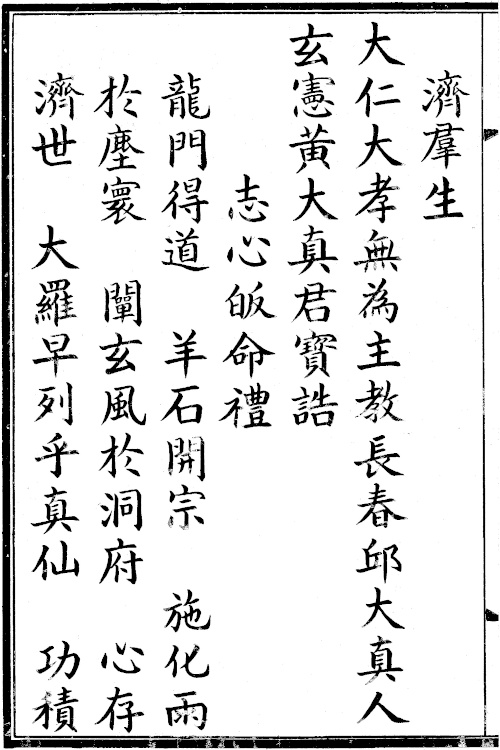 濟羣生
大仁大孝無為主教長春邱大真人
玄憲黃大真君寶誥
志心皈命禮
龍門得道 羊石開宗 施化雨
於塵寰 闡玄風於洞府 心存
濟世 大羅早列乎真仙 功積